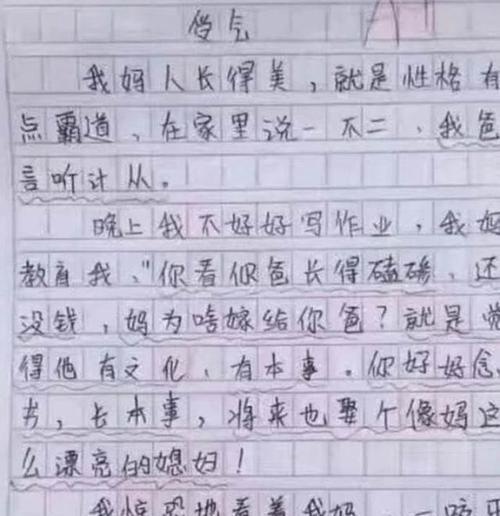 傻气
我妈人长得美，就是性格有
点霸道，在家里说一不二，我爸
言听计从。
晚上我不好好写作业，我妈
教育我，"你看你爸长得磕碜，还
没钱，妈为啥嫁给你爸？就是觉
得他有文化，有本事。你好好念
书，长本事，将来也娶个像妈这
么漂亮的媳妇！
我惊恐地看着我妈